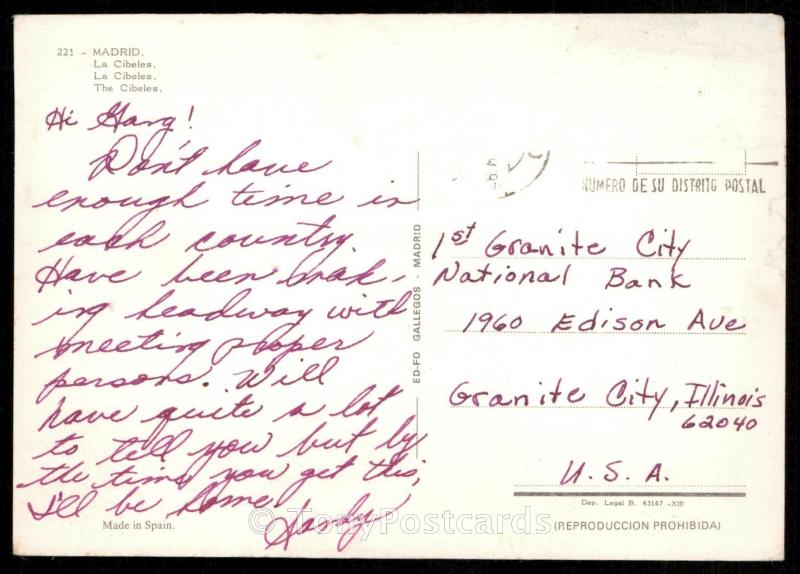 221 - MADRID.
La Cibeles.
La Cibeles.
The Cibeles.
Hi Gary!
Don't have
enough time in
each country.
Have been mak-
ing headway with
meeting proper
persons. Will
have quite a lot
to tell you but by
the time you get this,
I'll be home
Sandy
Made in Spain.
ED-FO GALLEGOS - MADRID
NUMERO DE SU DISTRITO POSTAL
1st Granite City
National Bank
1960 Edison Ave
Granite City, Illinois
62040
U. S. A.
Dep. Legal B. 43147 -XIII
(REPRODUCCION PROHIBIDA)
© TonyPostcards